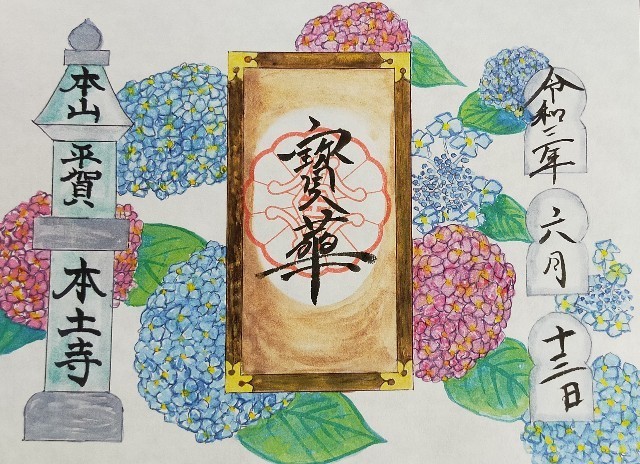 令和三年
六月
十三日
寶華
本山
平賀
本土寺